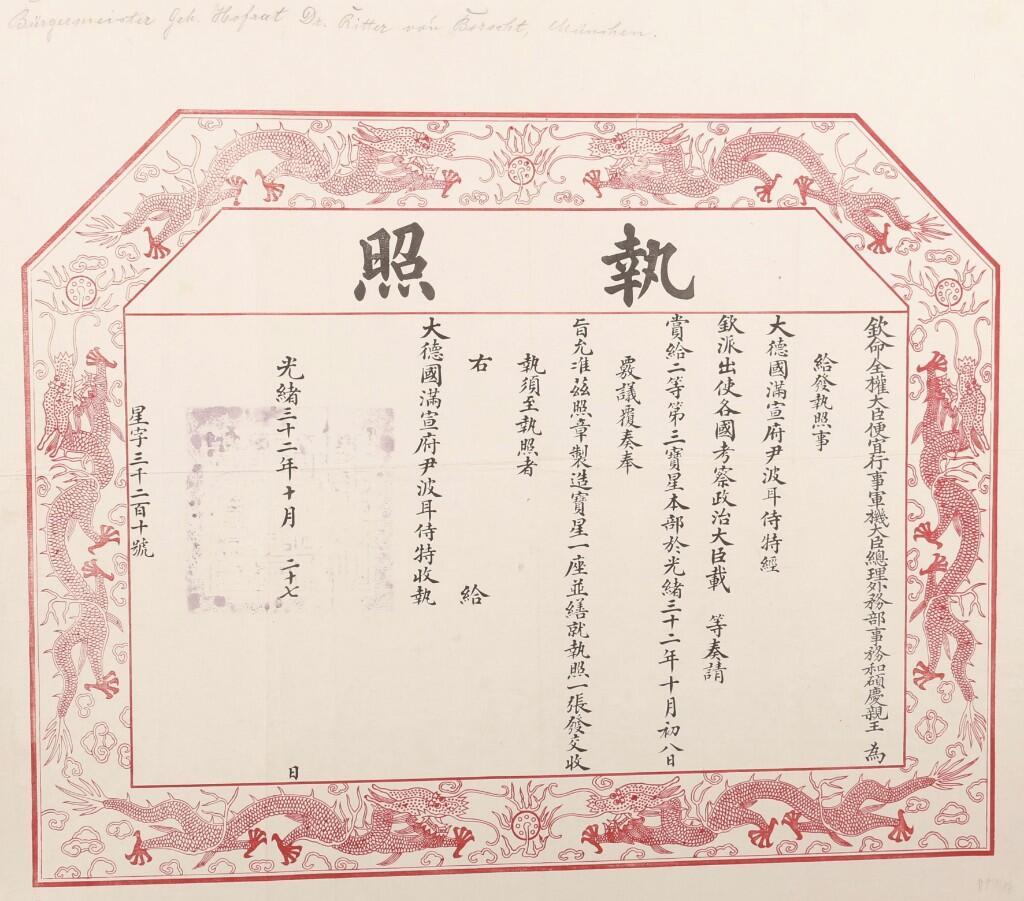 Bürgermeister Geh. Hofrat Dr. Ritter von Borscht, München.
執照
欽命全權大臣便宜行事軍機大臣總理外務部事務和碩慶親王 為
給發執照事
大德國滿宣府尹波耳侍特經
欽派出使各國考察政治大臣載 等奏請
賞給二等第三寶星本部於光緒三十二年十月初八日
覈議覆奏奉
旨允准茲照章製造寶星一座並繕就執照一張發交收
執須至執照者
右 給
大德國滿宣府尹波耳侍特收執
光緒三十二年十月 二十七 日
星字三千二百十號